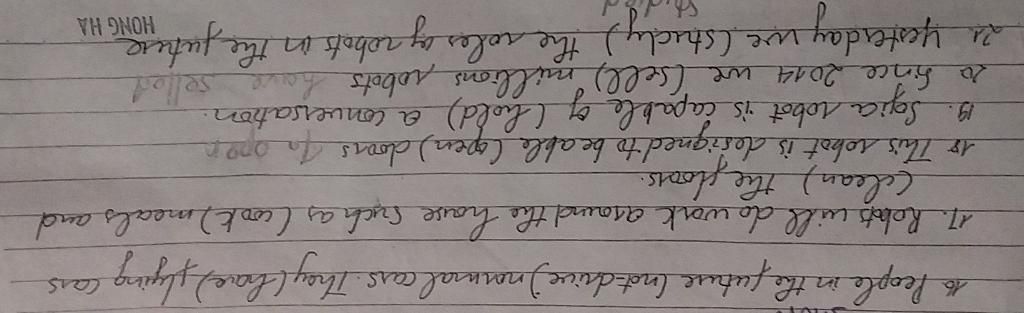 16 People in the future (not-drive) normal cars. They (have) flying cars
17. Robots will do work around the house such as (cook) meals and
(clean) the floors.
18 This robot is designed to be able (open) doors to open
19. Sofia robot is capable of (hold) a conversation.
20 Since 2014 we (sell) millions robots have selled
21 Yesterday we (study) the roles of robots in the future
studied
HONG HA